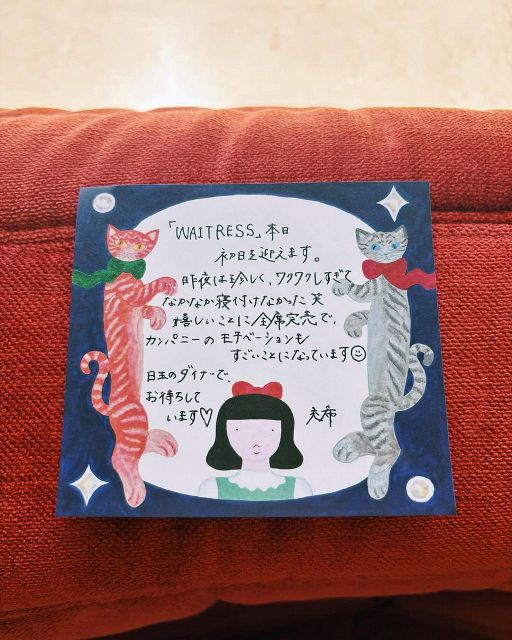 「WAITRESS」本日
初日を迎えます。
昨夜は珍しく、ワクワクしすぎて
なかなか寝付けなかった 笑
嬉しいことに全席完売で、
カンパニーの モチベーションも
すごいことになっています☺
日生のダイナーで、
お待ちして
います♡
夫希